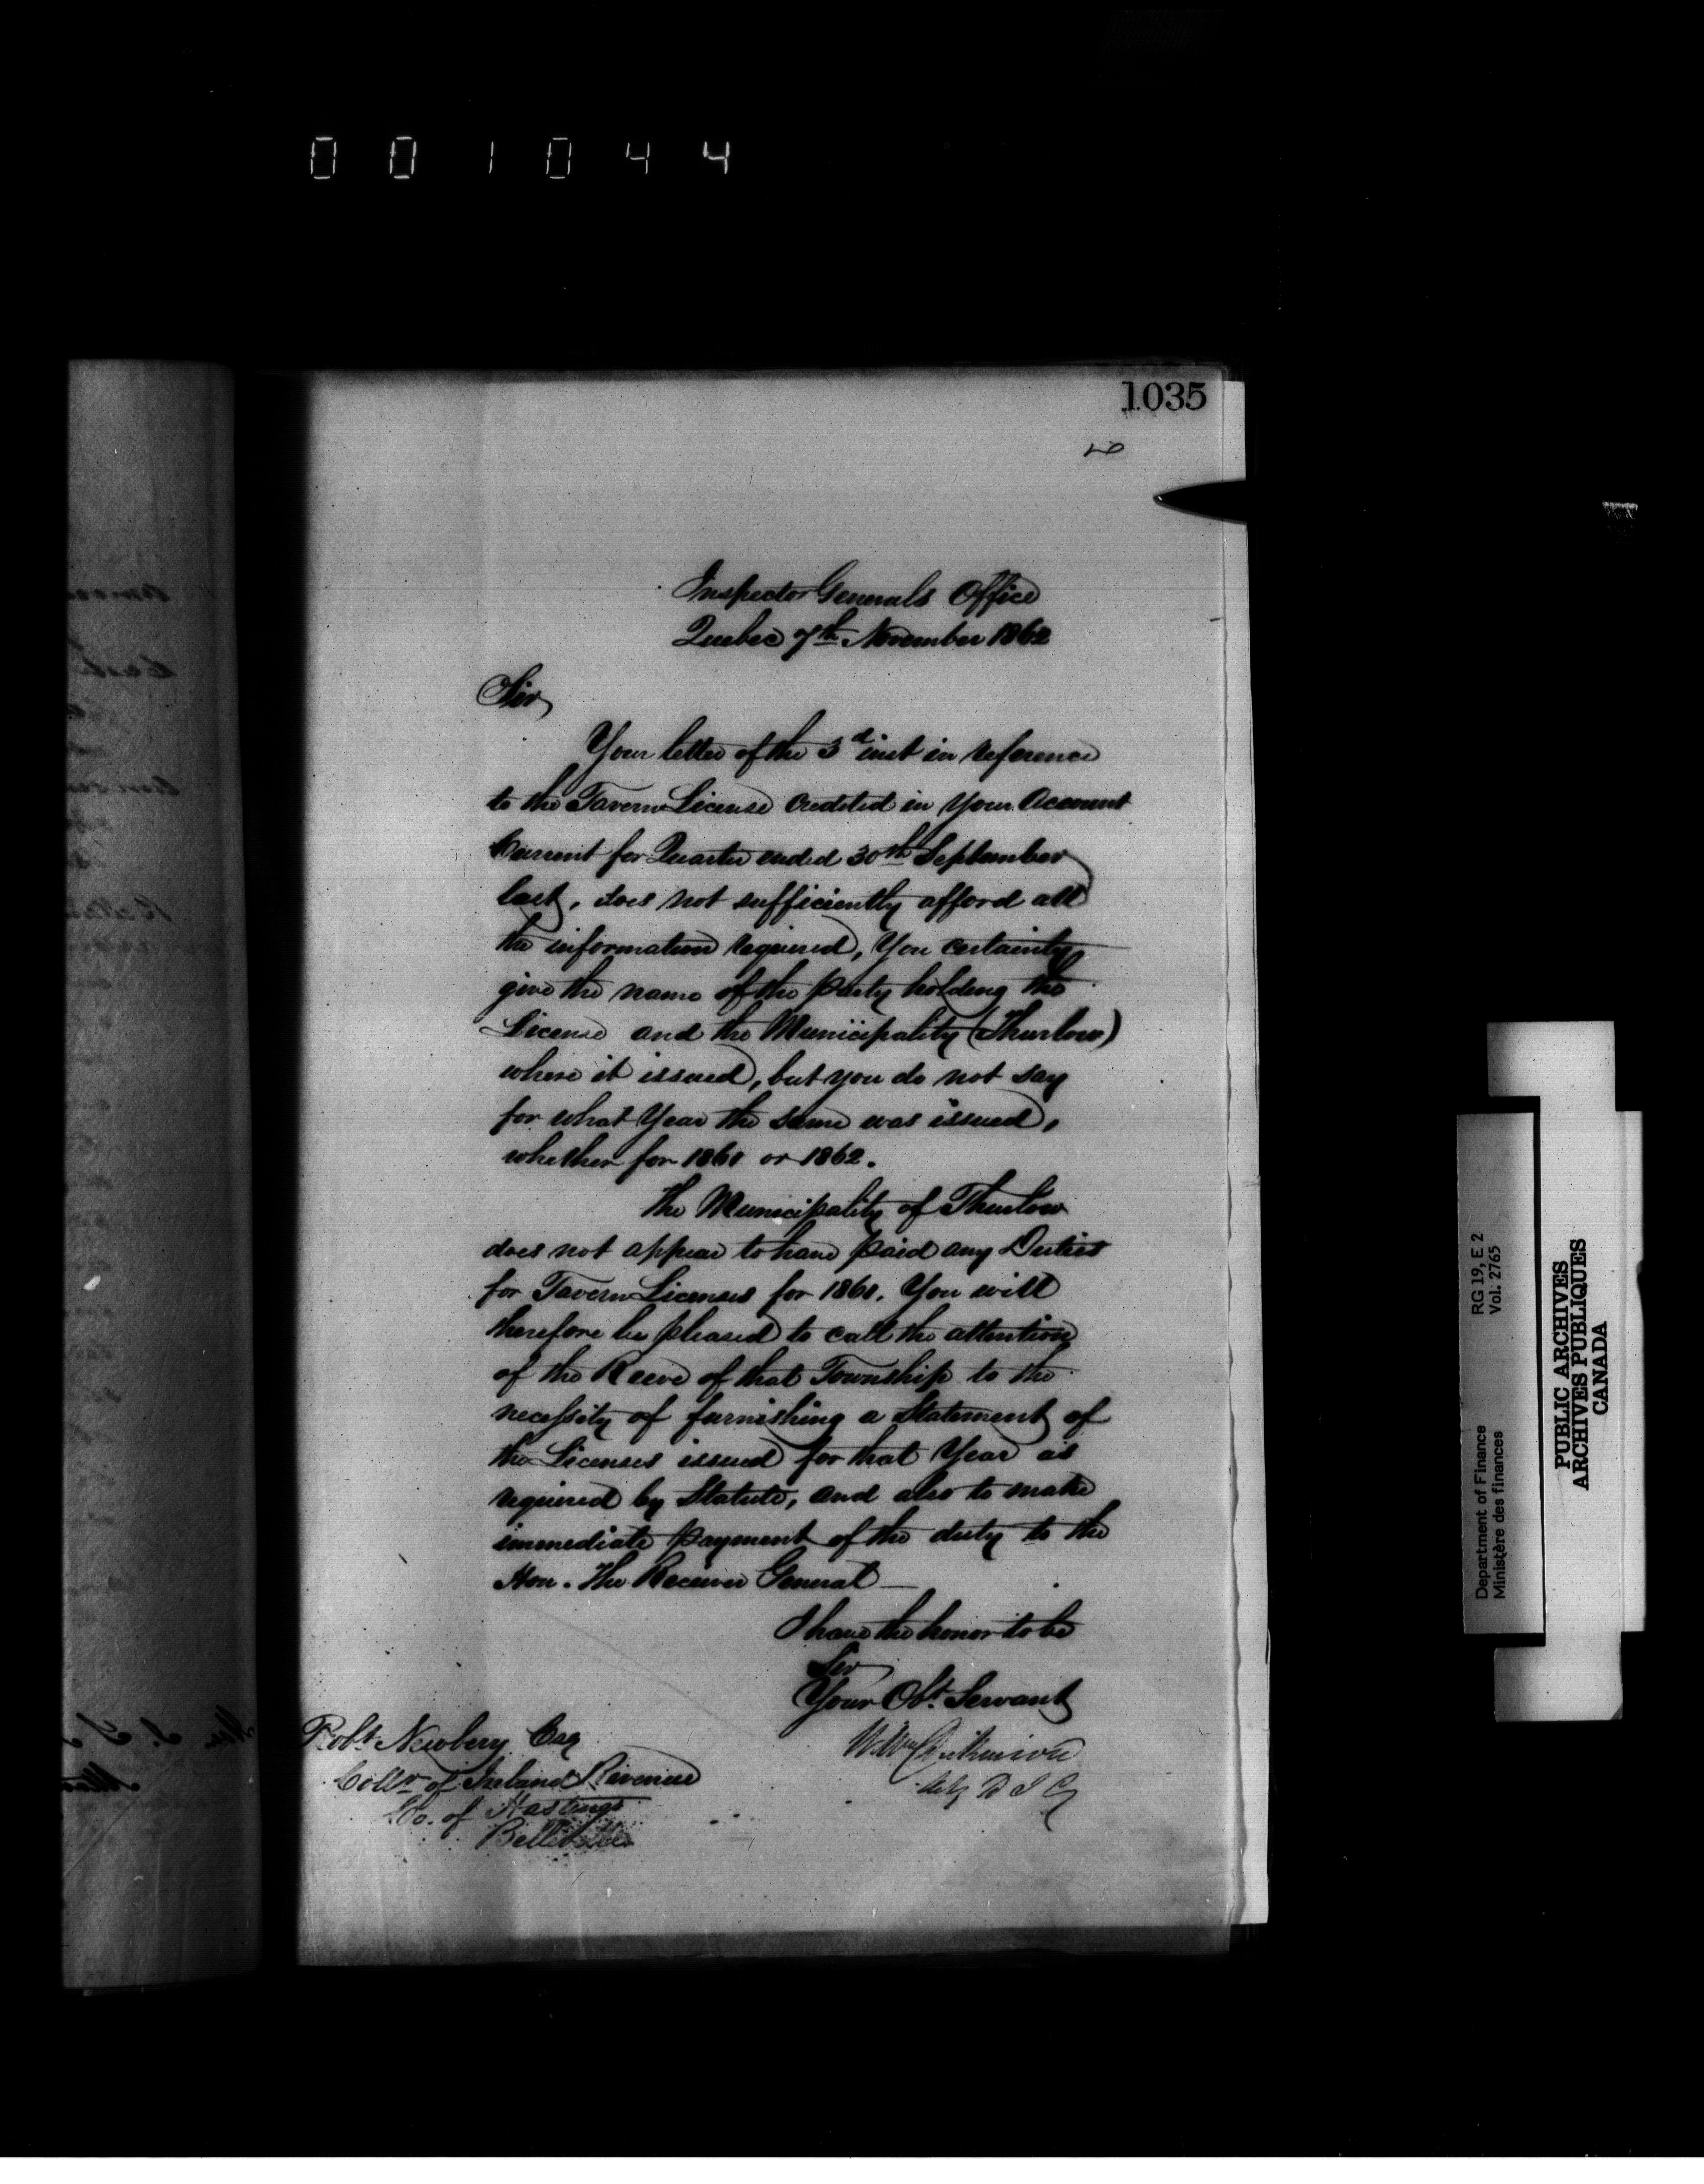 001044
1035
Inspector Generals Office
Quebec 7th November 1862
Sir,
Your letter of the 3d inst in reference
to the Tavern License Credited in Your Account
Current for Quarter ended 30th September
last, does not sufficiently afford all
the information required, You certainly
give the name of the party holding the
License and the Municipality (Thurlow)
where it issued, but you do not say
for what Year the same was issued,
whether for 1861 or 1862.
The Municipality of Thurlow
does not appear to have paid any Duties
for Tavern Licenses for 1861. You will
therefore be pleased to call the attention
of the Reeve of that Township to the
necessity of furnishing a Statement of
the Licenses issued for that Year as
required by Statute, and also to make
immediate payment of the duty to the
Hon. The Receiver General
I have the honor to be
Sir
Your Obt. Servant
Wm Dickinson
Actg D I G
Robt Newbery Esq
Collr of Inland Revenue
Co. of Hastings
Belleville
Department of Finance RG 19, E 2
Ministère des finances Vol. 2765
PUBLIC ARCHIVES
ARCHIVES PUBLIQUES
CANADA